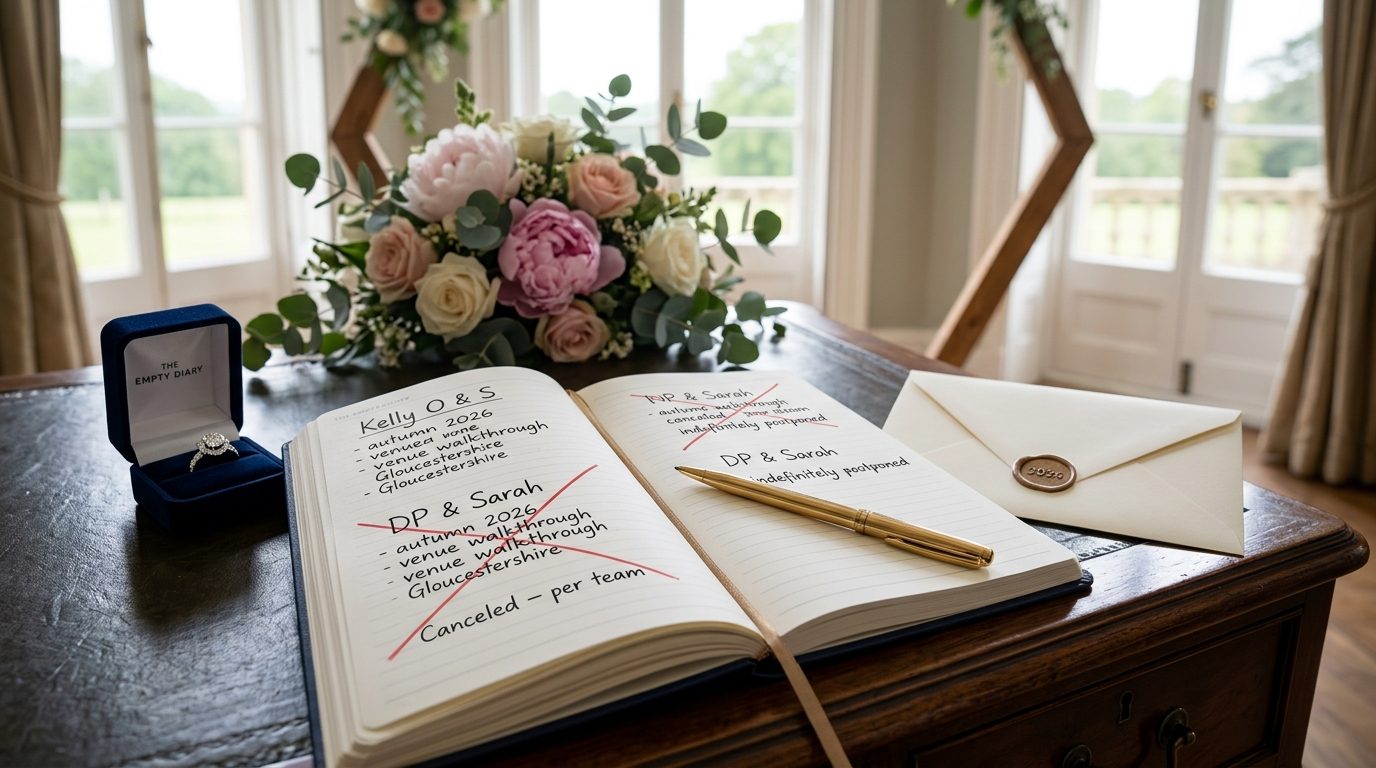 THE
EMPTY DIARY
Kelly O & S
- autumn 2026
- venued
- venue walkthrough
- Gloucestershire
- Gloucestershire
DP & Sarah
- autumn 2026
- venue walkthrough
- venue walkthrough
- Gloucestershire
Canceled – per team
& Sarah
- autumn
canceled
indefinitely postponed
DP & Sarah
indefinitely postponed